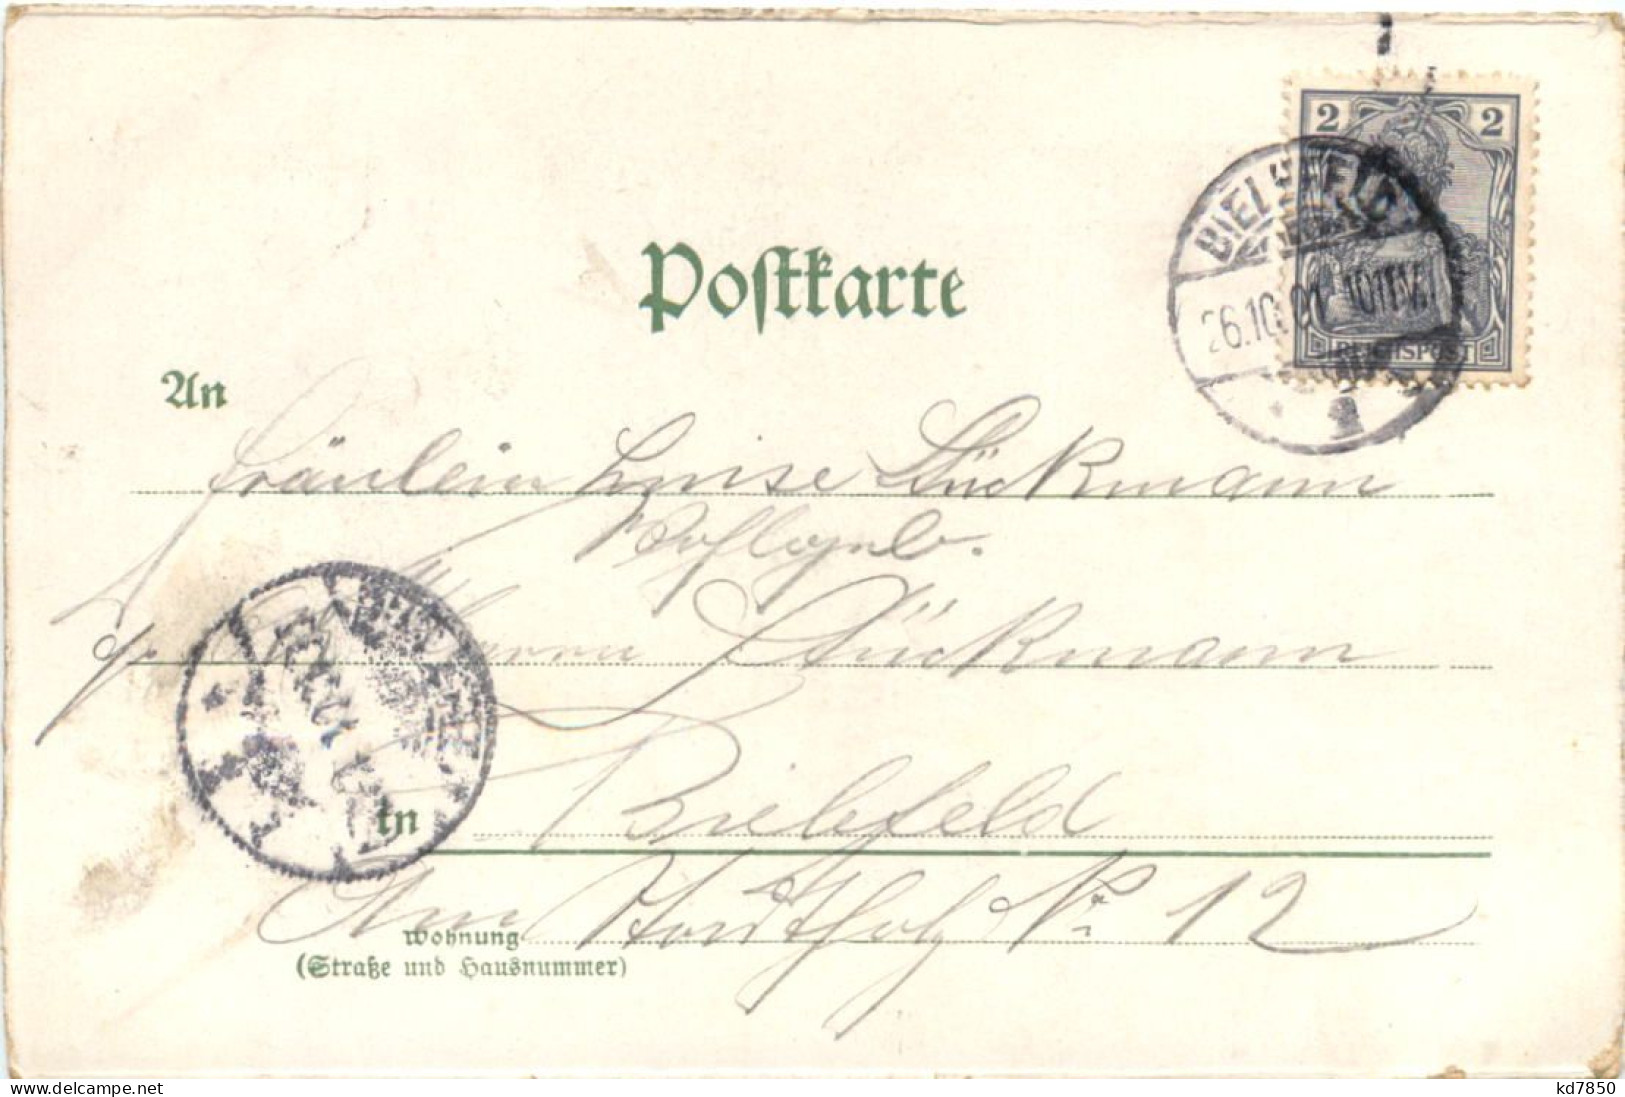 2 2
BIELEFELD
26.10.01 10-11V.
REICHSPOST
1
Postkarte
An
Fräulein Luise Stückmann
Wohlgeb.
Herrn Stückmann
in Bielefeld
Am N: 12
Wohnung
(Straße und Hausnummer)
www.delcampe.net
kd7850